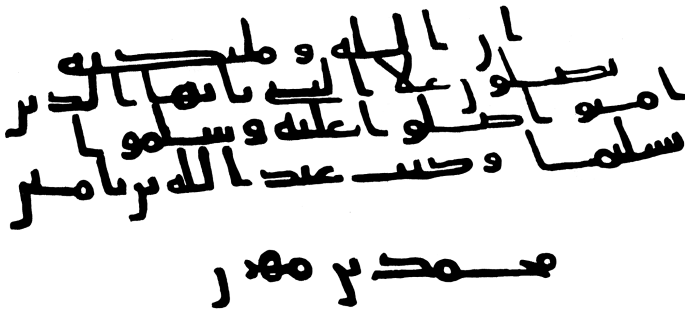 ان الله وملئكته
يصلون علا النبي يايها الذين
امنوا صلوا عليه وسلموا
تسليما وكتب عبد الله بن يامين
محمد بن